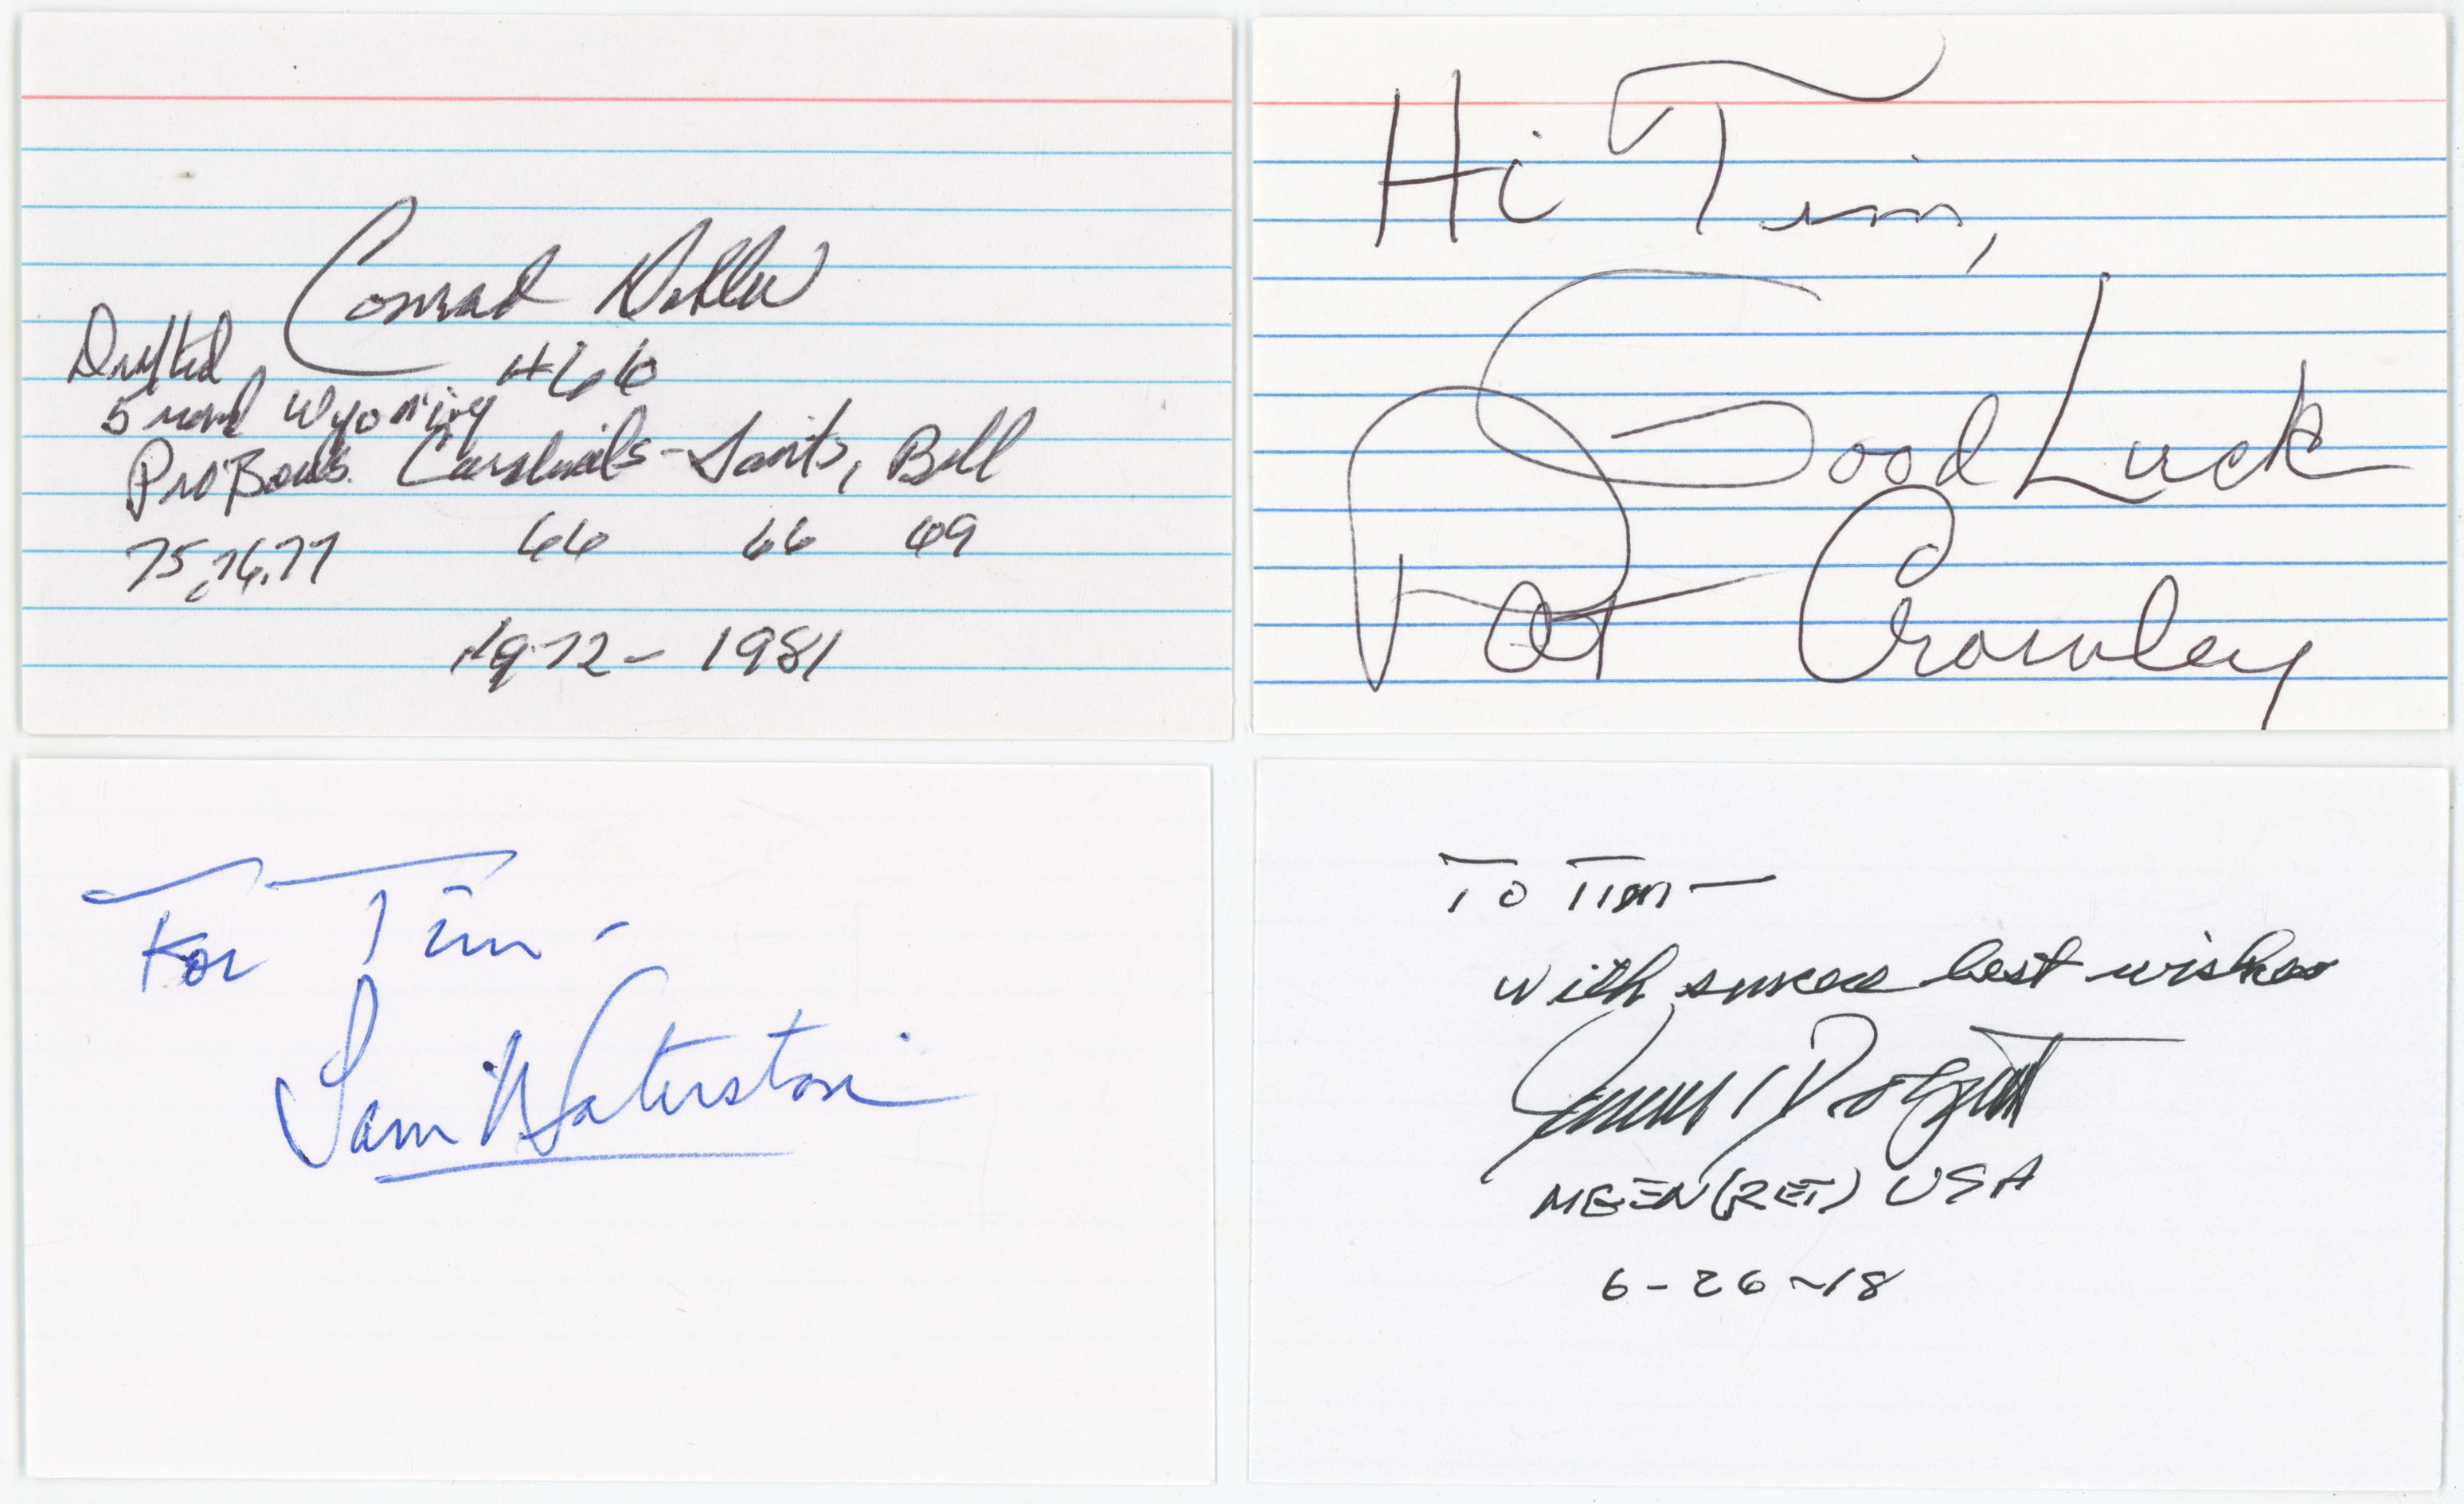 Conrad Dobler
#66
Drafted
5 round Wyoming
ProBowls. Cardinals - Saints, Bill
75, 76, 77 66 66 69
1972 - 1981
Hi Tim,
Good Luck
Pat Crowley
For Tim -
Sam Waterston
To Tim —
with sincere best wishes
MGEN (RET) USA
6-26-18